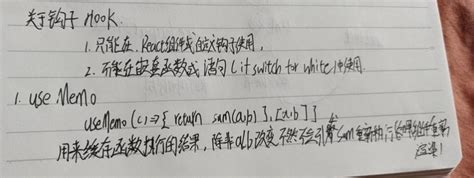 关于钩子 Hook.
1. 只能在 React组件或自定义钩子使用,
2. 不能在嵌套函数或语句(if switch for while)中使用.
1. use Memo
useMemo(()=>{ return sum(a,b)},[a,b])
用来缓存函数执行的结果, 除非a/b改变不然不会引发sum重新执行